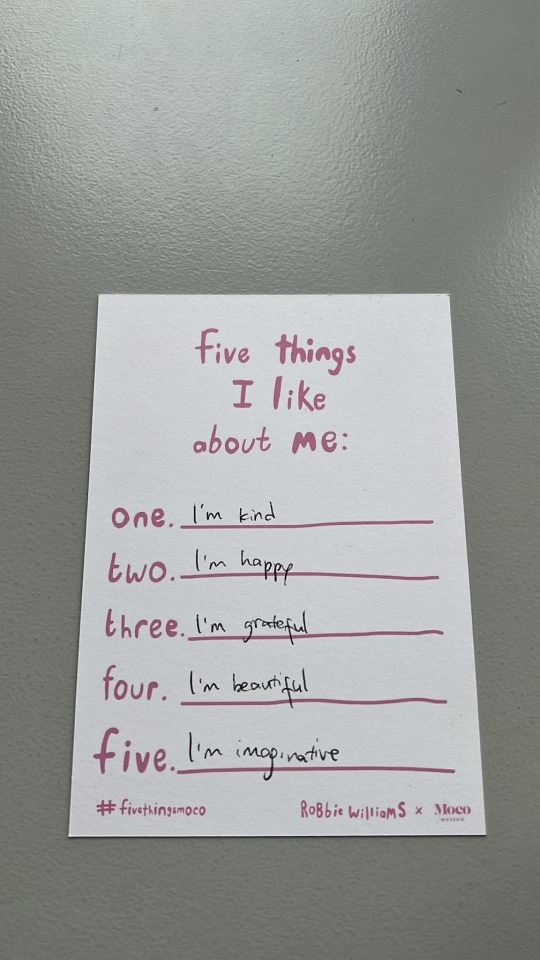 five things
I like
about me:
one. I'm kind
two. I'm happy
three. I'm grateful
four. I'm beautiful
five. I'm imaginative
#fivethingsmoco
Robbie Williams x Moco
MUSEUM